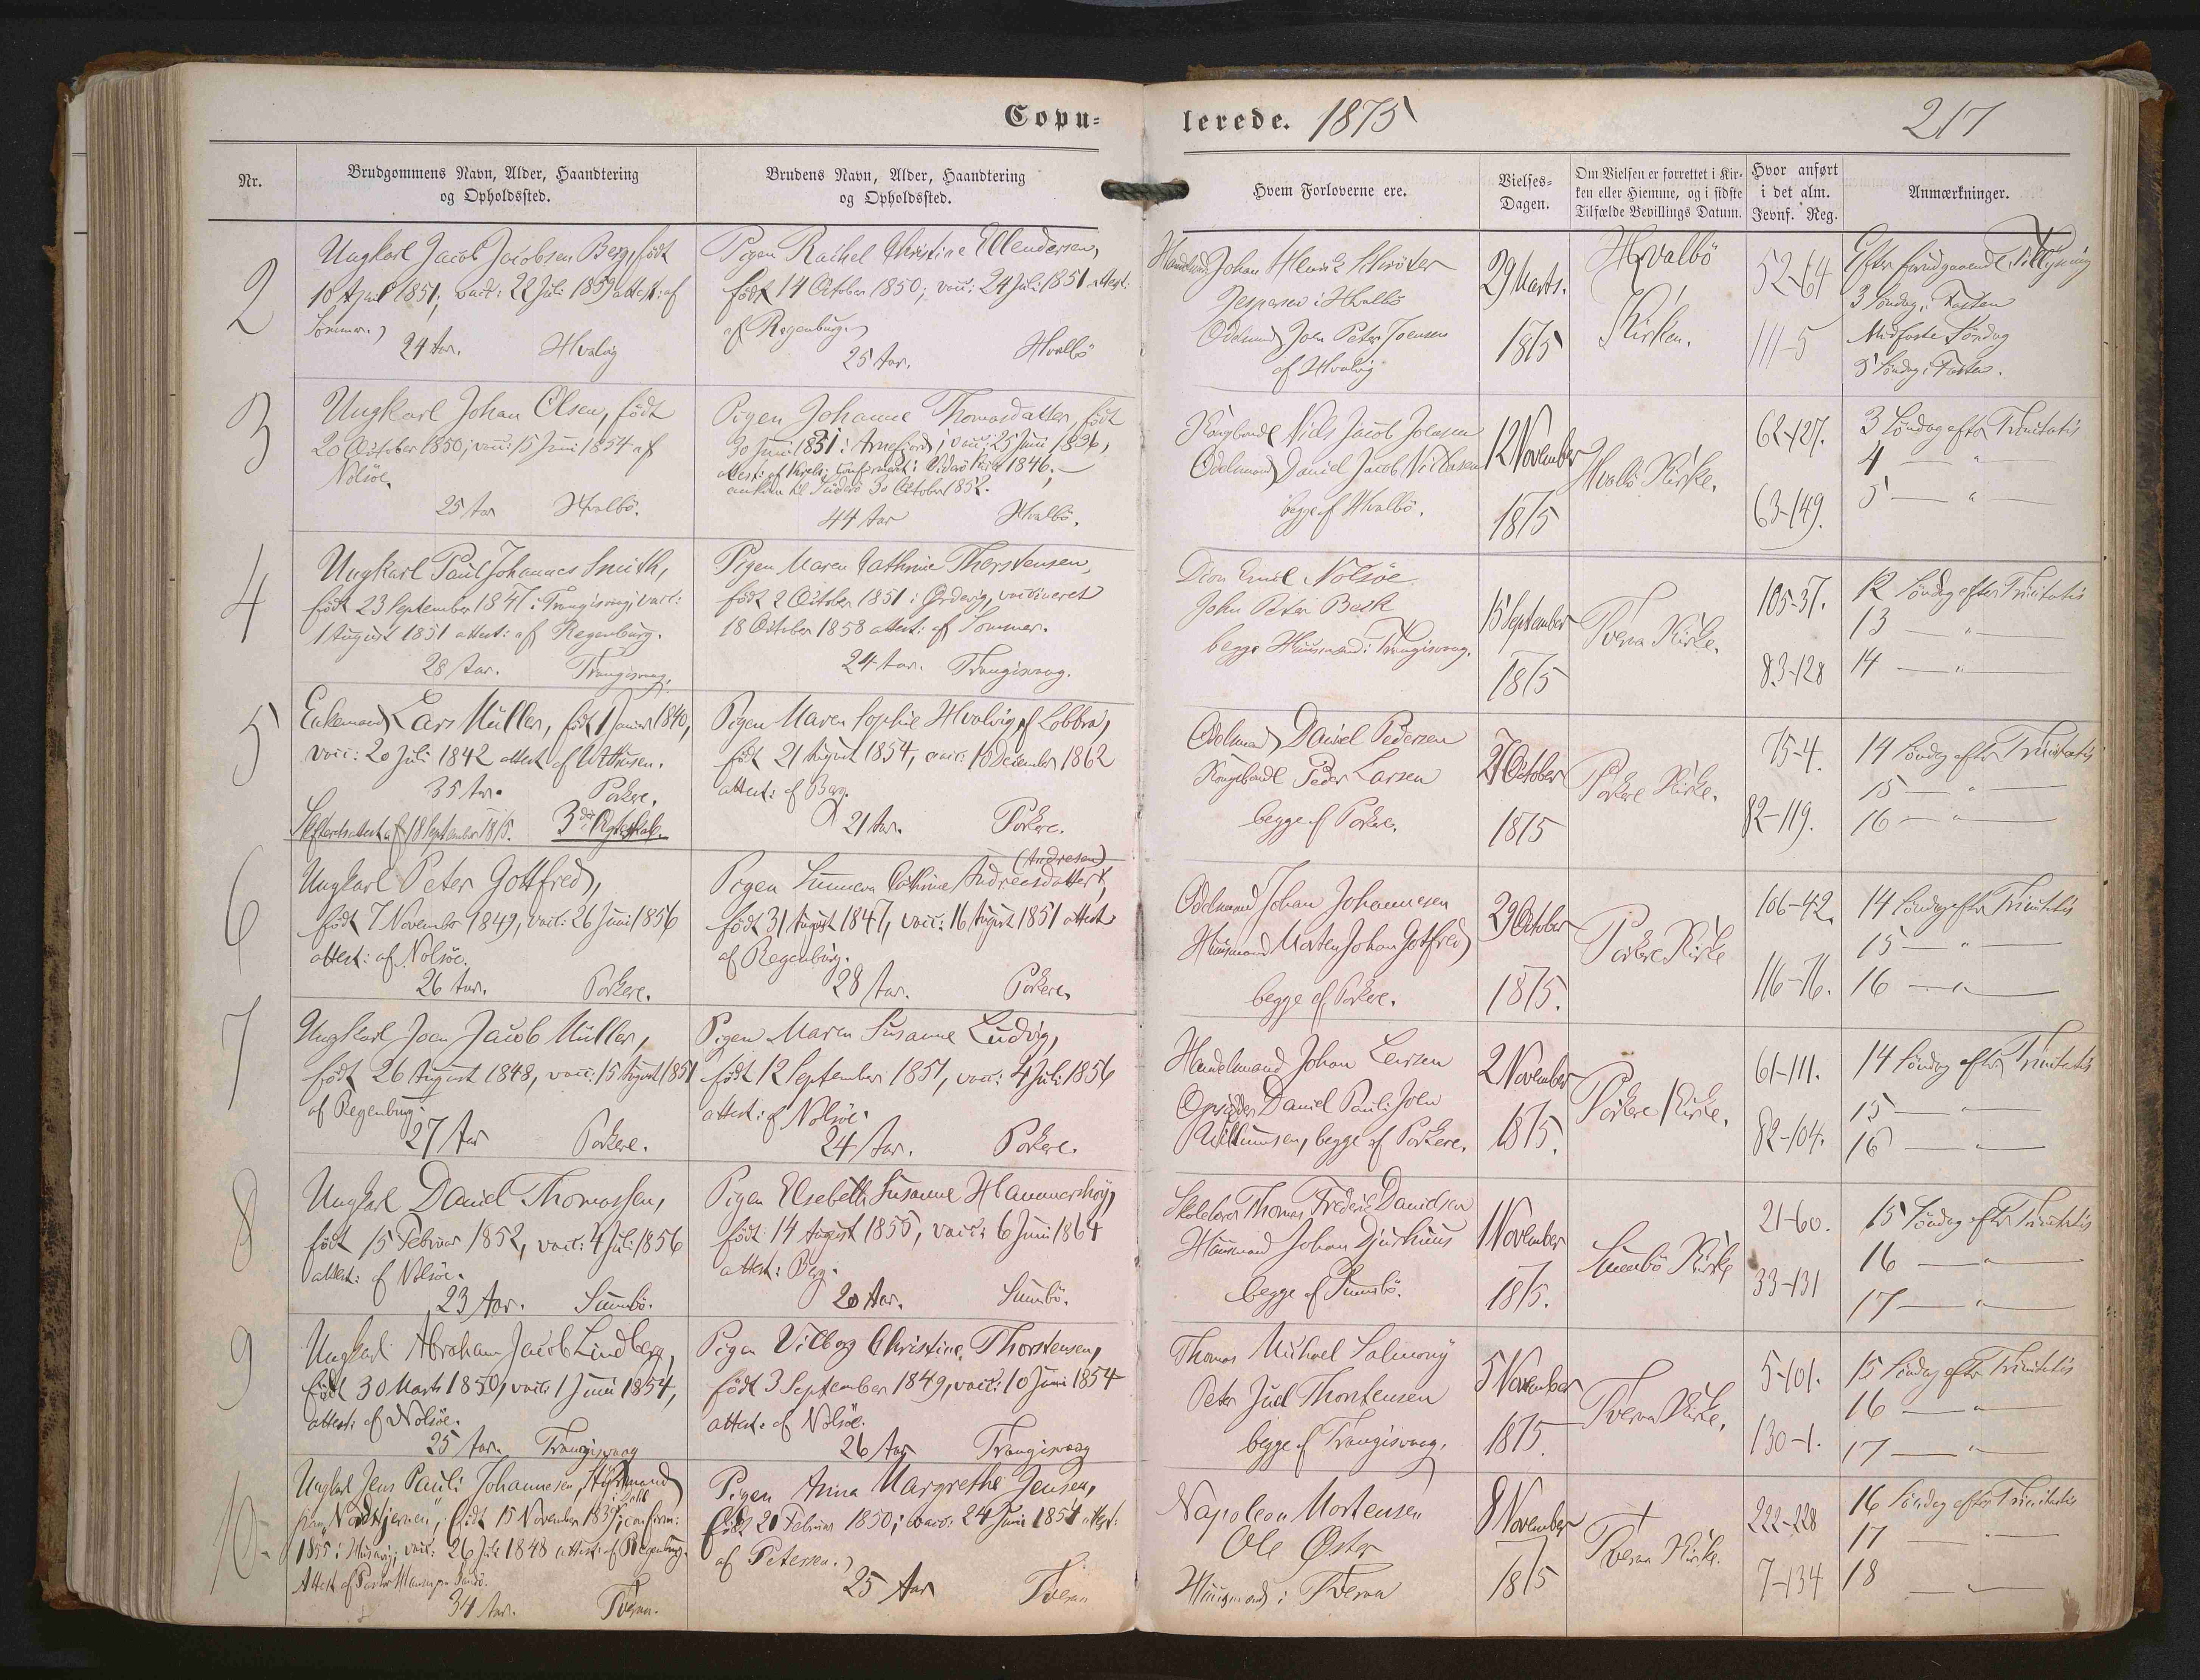 Copu-
lerede. 1875
217
Nr.
Brudgommens Navn, Alder, Haandtering
og Opholdssted.
Brudens Navn, Alder, Haandtering
og Opholdssted.
Hvem Forloverne ere.
Vielses-
Dagen.
Om Vielsen er forrettet i Kir-
ken eller Hiemme, og i sidste
Tilfælde Bevillings Datum.
Hvor anført
i det alm.
Jevnf. Reg.
Anmærkninger.
2
Ungkarl Jacob Jacobsen Berg, født
10 April 1851; vacc: 22 Juli 1859 attest: af
Sommer.
24 Aar. Hvalvig
Pigen Rachel Christine Ellendersen,
født 14 October 1850; vacc: 24 Juli 1851 attest:
af Regenburg.
25 Aar. Hvalbö
Johan Henrik Schröter
Jespersen i Hvalbö
Odelsmand Joen Peter Joensen
af Hvalvig
29 Marts.
1875
Hvalbö
Kirken.
52-64
111-5
Efter forudgaaende Tillysning
3 Söndag i Fasten
Midfaste Söndag
5 Söndag i Fasten.
3
Ungkarl Johan Olsen, født
20 October 1850; vacc: 15 Juni 1854 af
Nolsöe.
25 Aar Hvalbö.
Pigen Johanne Thomasdatter, født
30 Juni 1831 i Arnefjord; vacc: 25 Juni 1836,
attest: af confirmert i Viderö Kirke 1846;
ankom til Suderö 30 October 1852.
44 Aar Hvalbö.
Kongsbonde Niels Jacob Joensen
Odelsmand Daniel Jacob
begge af Hvalbö.
12 November
1875
Hvalbö Kirke.
62-127.
63-149.
3 Söndag efter Trinitatis
4 — " —
5 — " —
4
Ungkarl Paul Johannes Smith,
født 23 September 1847 i Trangisvaag; vacc:
1 August 1851 attest: af Regenburg.
28 Aar. Trangisvaag.
Pigen Maren Cathrine Thorstensen,
født 2 October 1851 i Ørdevig, vaccineret
18 October 1858 attest: af Sommer.
24 Aar. Trangisvaag.
Dion Emil Nolsöe
John Peter Beck
begge Huusmænd i Trangisvaag.
15 September
1875
Tveraa Kirke.
105-37.
83-128
12 Söndag efter Trinitatis
13 — " —
14 — " —
5
Enkemand Lars Müller, født 1 Januar 1840,
vacc: 20 Juli 1842 attest af
35 Aar. Porkere.
Skifteretsattest af 18 September 1875. 3de Ægteskab.
Pigen Maren Sophie Hvalvig af Lobbra,
født 21 August 1854, vacc: 10 December 1862
attest: af Berg.
21 Aar. Porkere.
Odelsmand Daniel Pedersen
Kongsbonde Peder Larsen
begge af Porkere.
27 October
1875
Porkere Kirke.
75-4.
82-119.
14 Söndag efter Trinitatis
15 — " —
16 — " —
6
Ungkarl Peter Gottfred,
født 7 November 1849, vacc: 26 Juni 1856
attest: af Nolsöe.
26 Aar. Porkere.
(Andresen)
Pigen Sunneva Cathrine Andreasdatter,
født 31 August 1847, vacc: 16 August 1851 attest
af Regenburg.
28 Aar. Porkere.
Odelsmand Johan Johannesen
Huusmand Morten Johan Gotfred
begge af Porkere.
29 October
1875.
Porkere Kirke
106-42.
116-76.
14 Söndag efter Trinitatis
15 — " —
16 — " —
7
Ungkarl Joen Jacob Müller,
født 26 August 1848, vacc: 15 August 1851
af Regenburg.
27 Aar Porkere.
Pigen Maren Susanne Ludvig,
født 12 September 1851, vacc: 4 Juli 1856
attest: af Nolsöe.
24 Aar. Porkere.
Handelsmand Johan Larsen
Opsidder Daniel Pauli Joen
Willumsen, begge af Porkere.
2 November
1875.
Porkere Kirke.
61-111.
82-104.
14 Söndag efter Trinitatis
15 — " —
16 — " —
8
Ungkarl Daniel Thomassen,
født 15 Februar 1852, vacc: 4 Juli 1856
attest: af Nolsöe.
23 Aar. Sumbö.
Pigen Elsebeth Susanne Hammershøy,
født 14 August 1855, vacc: 6 Juni 1864
attest: Berg.
20 Aar. Sumbö.
Skolelærer Thomas Frederik Danielsen
Huusmand Johan Djurhuus
begge af Sumbö.
1 November
1875.
Sumbö Kirke
21-60.
33-131
15 Söndag efter Trinitatis
16 — " —
17 — " —
9
Ungkarl Abraham Jacob Lindberg,
født 30 Marts 1850, vacc: 1 Juni 1854,
attest: af Nolsöe.
25 Aar. Trangisvaag
Pigen Vilborg Christine Thorstensen,
født 3 September 1849, vacc: 10 Juni 1854
attest: af Nolsöe.
26 Aar Trangisvaag
Thomas Michael Salmony
Peter Juel Thorstensen
begge af Trangisvaag.
5 November
1875.
Tveraa Kirke.
5-101.
130-1.
15 Söndag efter Trinitatis
16 — " —
17 — " —
10
Ungkarl Jens Pauli Johannesen, Styrmand
paa "Nordstjernen", født 15 November 1835; confirm:
1855 i Husevig; vacc: 26 Juli 1848 attest: af Regenburg.
Attest af Pastor
34 Aar. Tveraa.
Pigen Anna Margrethe Jensen,
født 20 Februar 1850; vacc: 24 Juni 1851 attest:
af Petersen.
25 Aar Tveraa
Napoleon Mortensen
Ole Öster
Huusmænd i Tveraa
8 November
1875
Tveraa Kirke.
222-228
7-134
16 Söndag efter Trinitatis
17 — " —
18 — " —